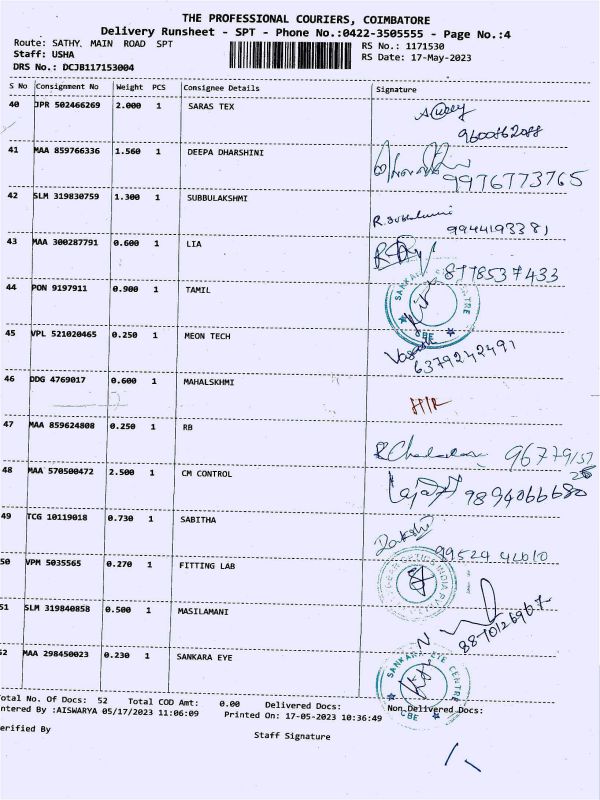 THE PROFESSIONAL COURIERS, COIMBATORE
Delivery Runsheet - SPT - Phone No.:0422-3505555 - Page No.:4
Route: SATHY. MAIN ROAD SPT
RS No.: 1171530
Staff: USHA
RS Date: 17-May-2023
DRS No.: DCJB117153004
S No Consignment No Weight PCS Consignee Details Signature
40 JPR 502466269 2.000 1 SARAS TEX
9600862088
41 MAA 859766336 1.560 1 DEEPA DHARSHINI
9976773765
42 SLM 319830759 1.300 1 SUBBULAKSHMI
R.Subbulakshmi
9944193381
43 MAA 300287791 0.600 1 LIA
8778537433
44 PON 9197911 0.900 1 TAMIL
SANKARA EYE CENTRE
CBE
45 VPL 521020465 0.250 1 MEON TECH
6379242491
46 DDG 4769017 0.600 1 MAHALSKHMI
H/R
47 MAA 859624808 0.250 1 RB
9677915725
48 MAA 570500472 2.500 1 CM CONTROL
9894066680
49 TCG 10119018 0.730 1 SABITHA
Dakshi
50 VPM 5035565 0.270 1 FITTING LAB
51 SLM 319840858 0.500 1 MASILAMANI
8870126907
52 MAA 298450023 0.230 1 SANKARA EYE
SANKARA EYE CENTRE
CBE
Total No. Of Docs: 52 Total COD Amt: 0.00 Delivered Docs: Non Delivered Docs:
ntered By :AISWARYA 05/17/2023 11:06:09 Printed On: 17-05-2023 10:36:49
erified By
Staff Signature